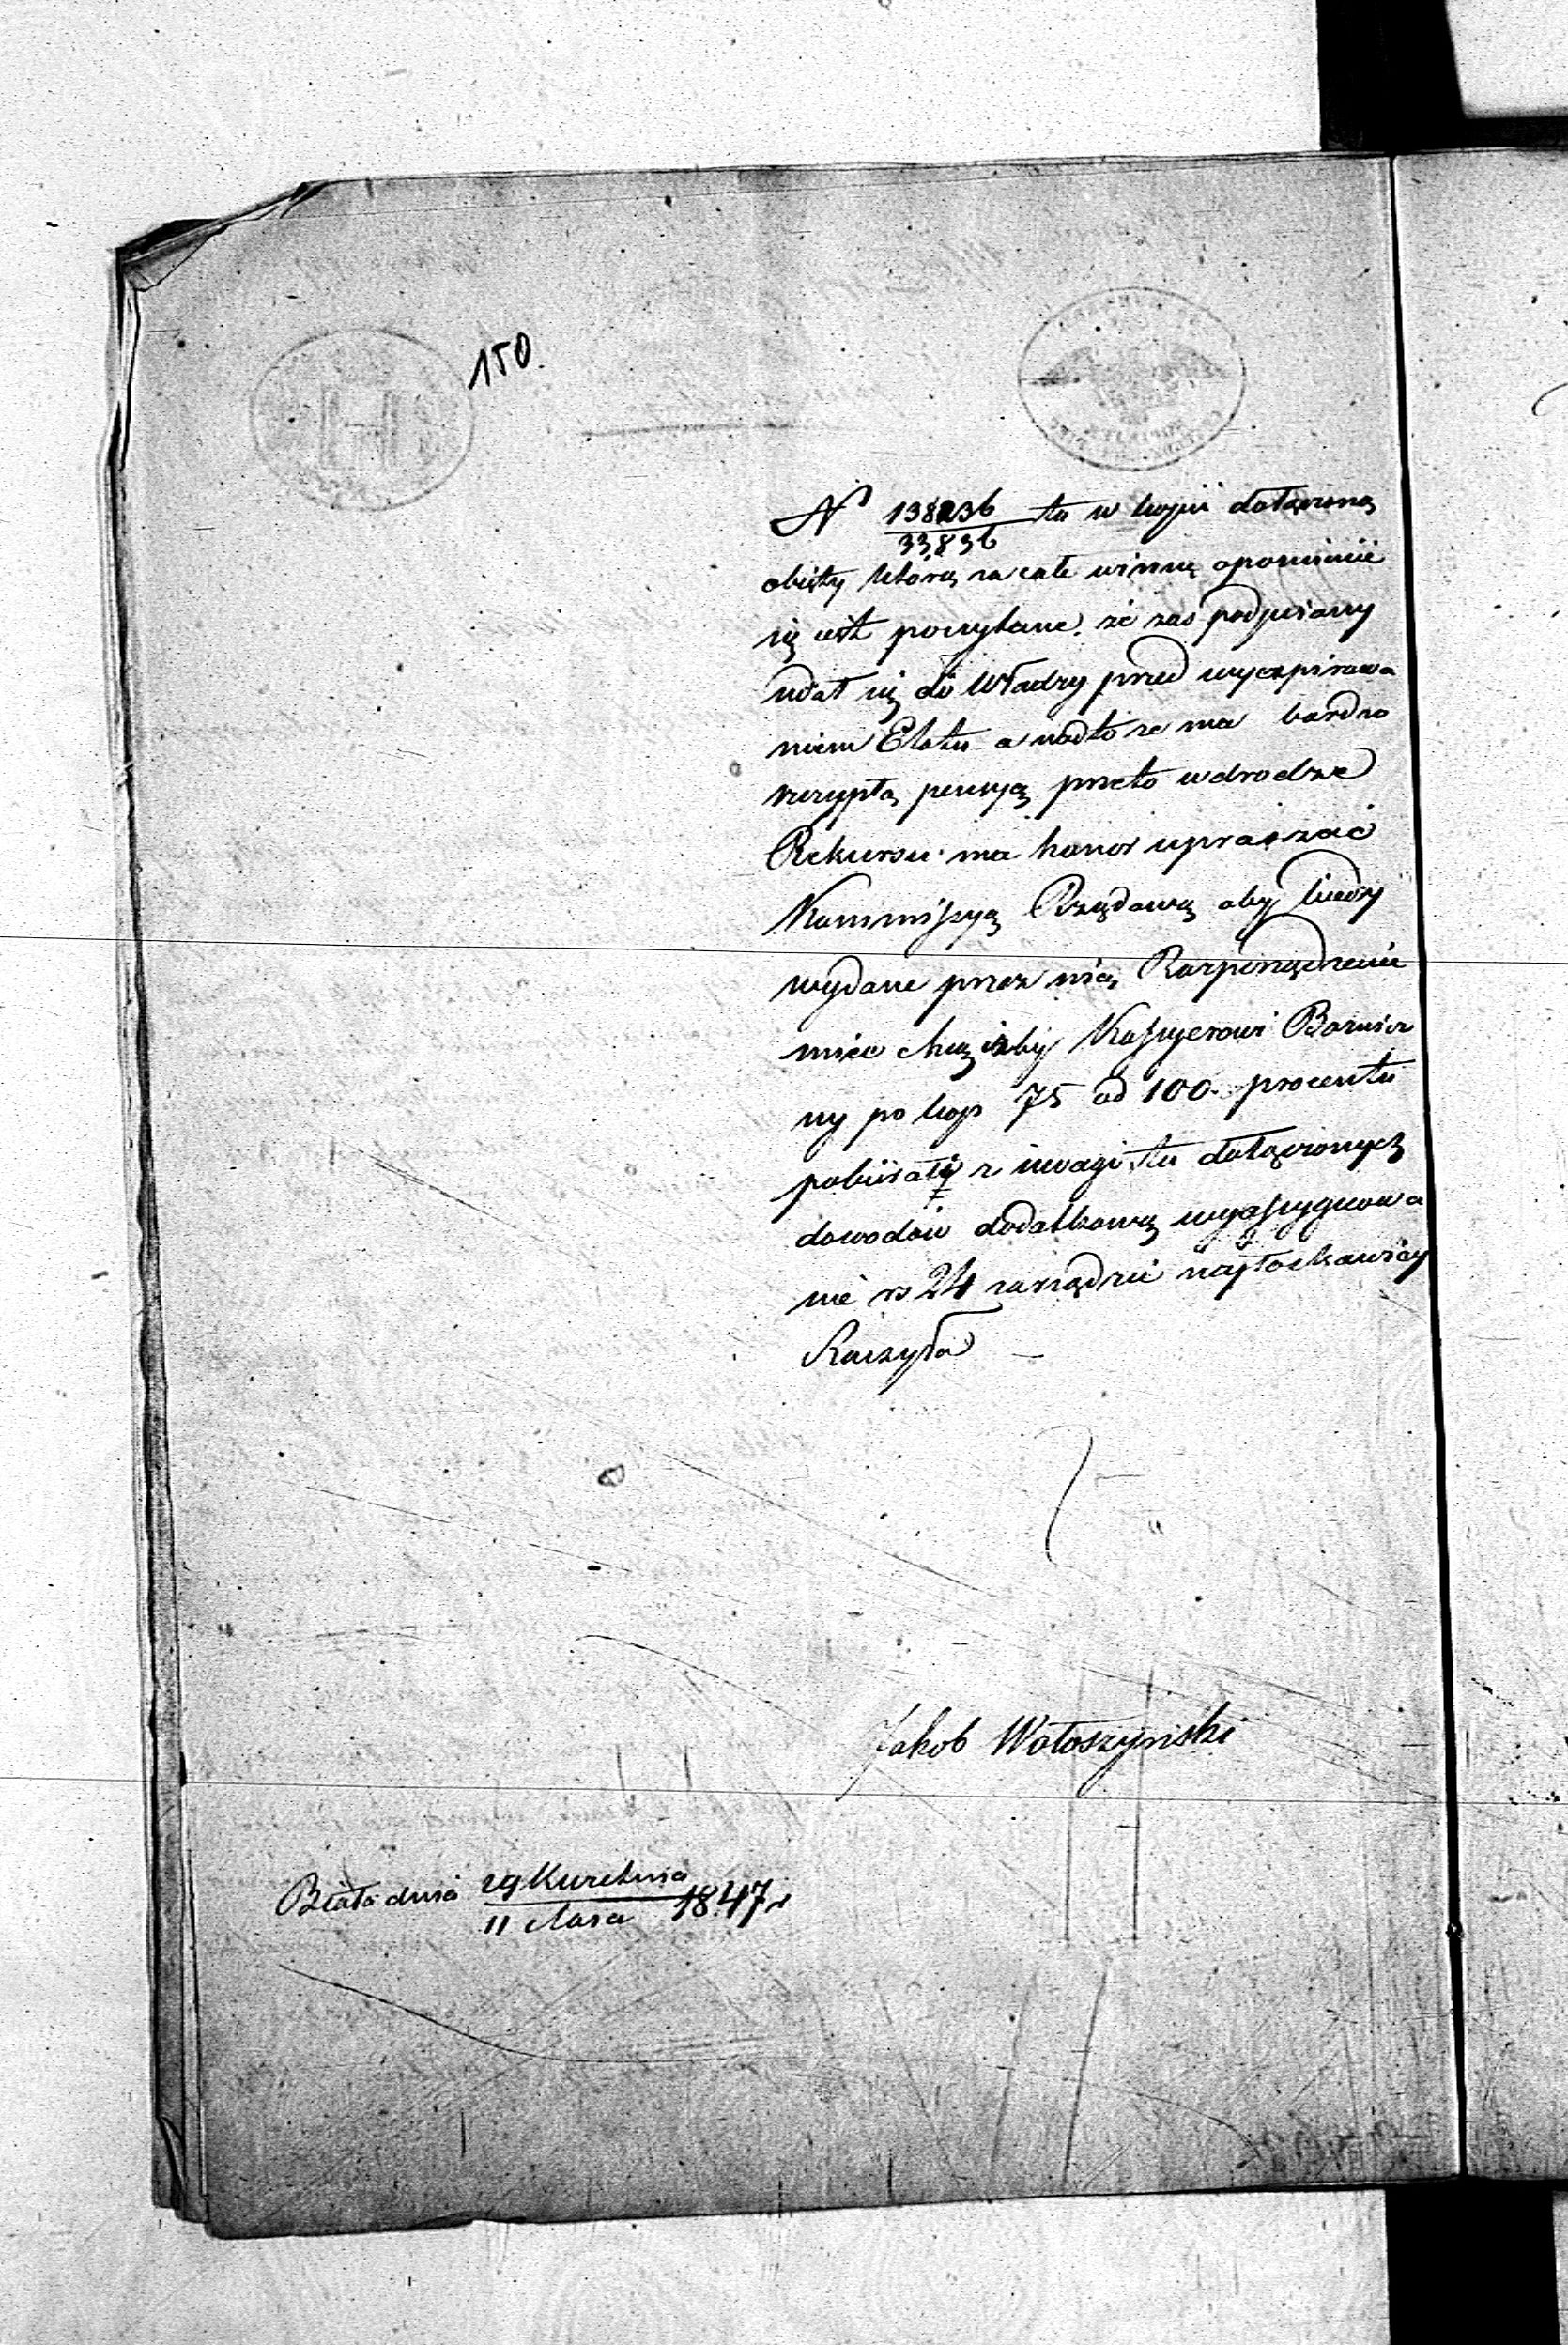 150.
N 138236/33,836 tu w kopii dołączoną
obięty którą na całe winnę upomnienie
się iest poczytane. że zaś podpisany
udał się do Władzy przed wyexpirowa
niem Etatu a nadto że ma bardzo
szczypłą pensyą przeto w drodze
Rekursu ma honor upraszać
Kommissyą Rządową aby kiedy
wydane przez nią Rozporządzenie
mieć chcą iżby Kassyerowi Boznicz
ny po kop 75 od 100 procentu
pobierały z uwagi tu dołączonych
dowodów dodatkową wyassygnowa
nie rs 24 zarządzić najłaskawiey
Raczyła
Jakob Wołoszyński
Biała dnia 29 Kwietnia/11 Maja 1847 r